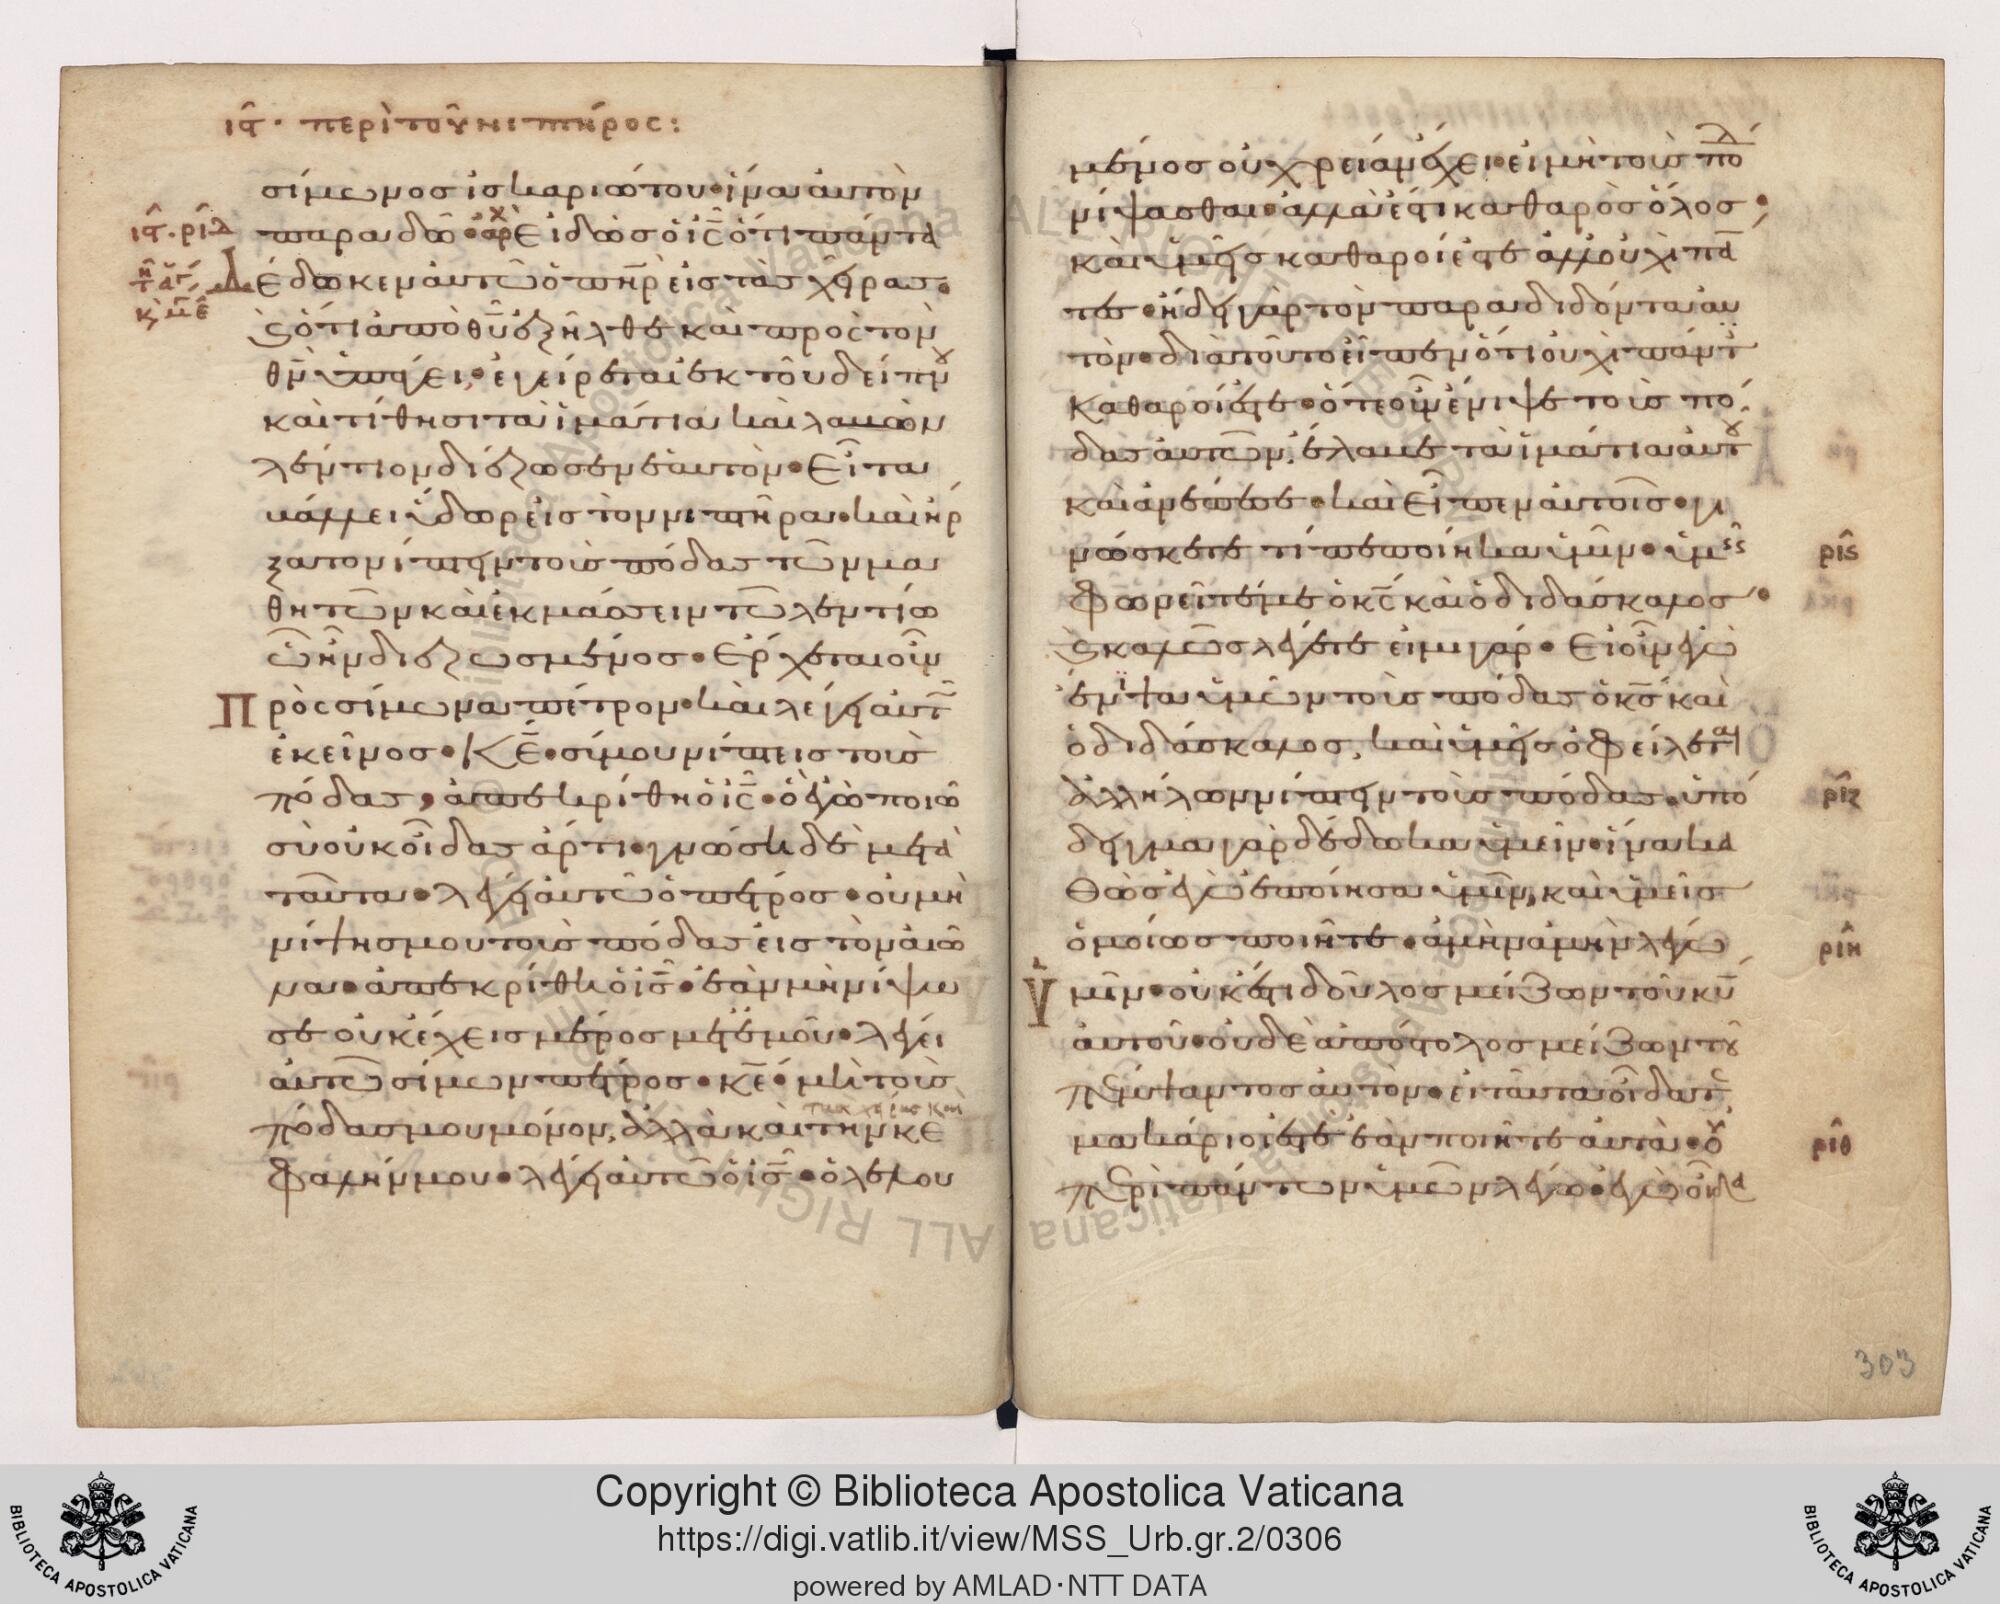 ιϛ· περὶ τοῦ νιπτῆρος:
σίμωνος ἰσκαριώτου· ἵνα αὐτὸν
παραδῶ· ἀρχ εἰδὼς ὁ ις ὅτι πάντα
δέδωκεν αὐτῶ ὁ πηρ εἰς τὰς χεῖρας·
ϗ ὅτι ἀπὸ θυ ἐξῆλθε καὶ πρὸς τὸν
θν ὑπάγει· ἐγείρεται ἐκ τοῦ δείπνου
καὶ τίθησι τὰ ἱμάτια καὶ λαβὼν
λέντιον διέζωσεν ἑαυτόν· εἶτα
βάλλει ὕδωρ εἰς τὸν νιπτῆρα· καὶ ἤρ
ξατο νίπτειν τοὺς πόδας τῶν μα
θητῶν καὶ ἐκμάσσειν τῶ λεντίω
ὧ ἦν διεζωσμένος· ἔρχεται οὖν
πρὸς σίμωνα πέτρον· καὶ λέγει αὐτ
ἐκεῖνος· κε· σύ μου νίπτεις τοὺς
πόδας, ἀπεκρίθη ὁ ις· ὃ ἐγὼ ποιῶ
σὺ οὐκ οἶδας ἄρτι· γνώση δὲ μετὰ
ταῦτα· λέγει αὐτῶ ὁ πέτρος· οὐ μὴ
νίψης μου τοὺς πόδας εἰς τὸν αἰῶ
να· ἀπεκρίθη ὁ ις· ἐὰν μὴ νίψω
σε οὐκ ἔχεις μέρος μετ' ἐμοῦ· λέγει
αὐτῶ σίμων πέτρος· κε· μὴ τοὺς
τὰς χεῖρας καὶ
πόδας μου μόνον, ἀλλὰ καὶ τὴν κε
φαλήν μου· λέγει αὐτῶ ὁ ις· ὁ λελου
ιϛ· ριδ
κϛ
μένος οὐ χρείαν ἔχει· εἰ μὴ τοὺς πόδ
νίψασθαι· ἀλλ' ἔστι καθαρὸς ὅλος·
καὶ ὑμεῖς καθαροί ἐστε ἀλλ' οὐχὶ πά
τες· ἤδει γὰρ τὸν παραδιδόντα αὐ
τόν· διὰ τοῦτο εἶπεν ὅτι οὐχὶ πάντ
καθαροί ἐστε· ὅτε οὖν ἔνιψε τοὺς πό
δας αὐτῶν, ἔλαβε τὰ ἱμάτια αὐτοῦ
καὶ ἀνέπεσε· καὶ εἶπεν αὐτοῖς· γι
νώσκετε τί πεποίηκα ὑμῖν· ὑμεῖς
φωνεῖτέ με ὁ κς καὶ ὁ διδάσκαλος·
ϗ καλῶς λέγετε εἰμὶ γάρ· εἰ οὖν ἐγὼ
ἔνιψα ὑμῶν τοὺς πόδας ὁ κς καὶ
ὁ διδάσκαλος, καὶ ὑμεῖς ὀφείλετε
ἀλλήλων νίπτειν τοὺς πόδας· ὑπό
δειγμα γὰρ δέδωκα ὑμεῖν· ἵνα κα
θὼς ἐγὼ ἐποίησα ὑμῖν, καὶ ὑμεῖς
ὁμοίως ποιῆτε· ἀμὴν ἀμὴν λέγω
ὑμῖν· οὐκ ἔστι δοῦλος μείζων τοῦ κυ
αὐτοῦ· οὐδὲ ἀπόστολος μείζων τοῦ
πέμψαντος αὐτόν· εἰ ταῦτα οἴδατε
μακάριοί ἐστε ἐὰν ποιῆτε αὐτά· οὐ
περὶ πάντων ὑμῶν λέγω· ἐγὼ οἶδα
ριϛ
ριζ
ριη
ριθ
303
Copyright © Biblioteca Apostolica Vaticana
https://digi.vatlib.it/view/MSS_Urb.gr.2/0306
powered by AMLAD·NTT DATA
BIBLIOTECA APOSTOLICA VATICANA
BIBLIOTECA APOSTOLICA VATICANA